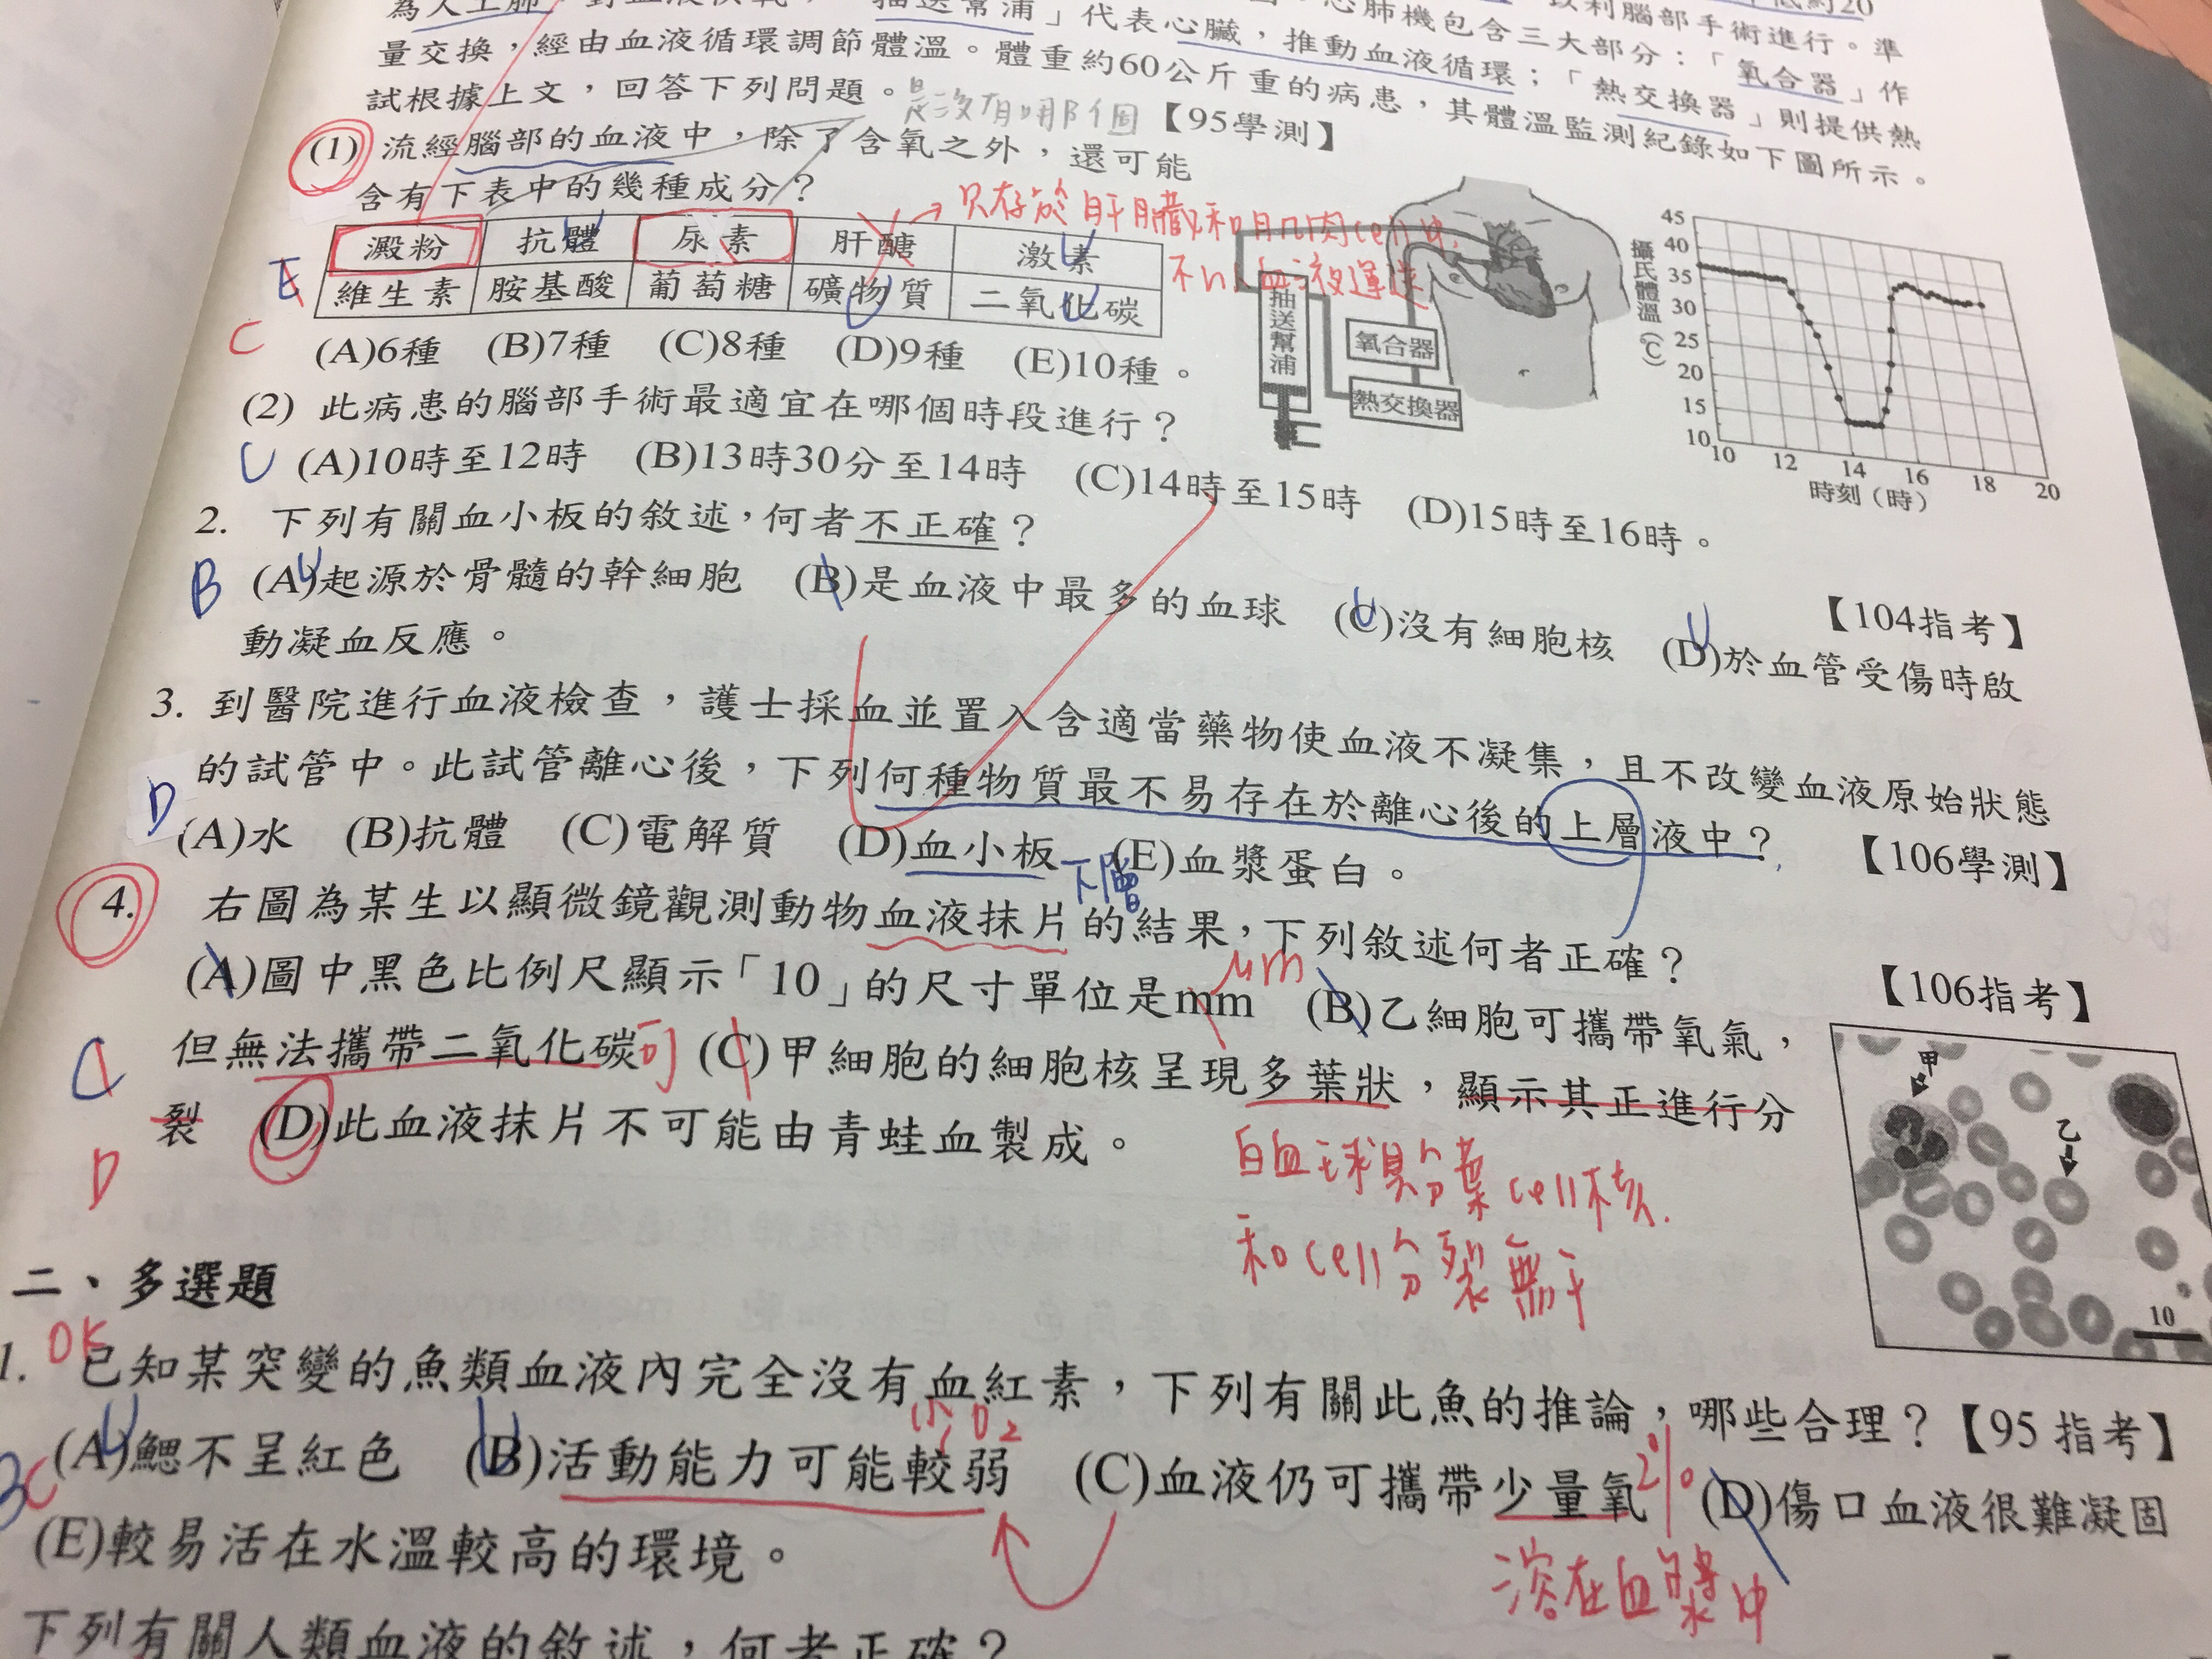 為人工肺,對血液供氧,「抽送幫浦」代表心臟,推動血液循環;「熱交換器」則提供熱
心肺機包含三大部分:「氧合器」作
以利腦部手術進行。準
低約20
量交換,經由血液循環調節體溫。體重約60公斤重的病患,其體溫監測紀錄如下圖所示。
試根據上文,回答下列問題。
是沒有哪個
【95學測】
(1) 流經腦部的血液中,除了含氧之外,還可能
含有下表中的幾種成分?
只存於肝臟和肌肉cell中,
不以血液運送
澱粉 抗體 尿素 肝醣 激素
維生素 胺基酸 葡萄糖 礦物質 二氧化碳
E
C
(A)6種 (B)7種 (C)8種 (D)9種 (E)10種。
抽送幫浦
氧合器
熱交換器
攝氏體溫(℃)
45
40
35
30
25
20
15
10
10 12 14 16 18 20
時刻(時)
(2) 此病患的腦部手術最適宜在哪個時段進行?
C (A)10時至12時 (B)13時30分至14時 (C)14時至15時 (D)15時至16時。
2. 下列有關血小板的敘述,何者不正確?
【104指考】
B (A)起源於骨髓的幹細胞 (B)是血液中最多的血球 (C)沒有細胞核 (D)於血管受傷時啟
動凝血反應。
3. 到醫院進行血液檢查,護士採血並置入含適當藥物使血液不凝集,且不改變血液原始狀態
的試管中。此試管離心後,下列何種物質最不易存在於離心後的上層液中?
【106學測】
D (A)水 (B)抗體 (C)電解質 (D)血小板 (E)血漿蛋白。
下層
4. 右圖為某生以顯微鏡觀測動物血液抹片的結果,下列敘述何者正確?
【106指考】
(A)圖中黑色比例尺顯示「10」的尺寸單位是mm (B)乙細胞可攜帶氧氣,
μm
但無法攜帶二氧化碳 (C)甲細胞的細胞核呈現多葉狀,顯示其正進行分
可
C
裂 (D)此血液抹片不可能由青蛙血製成。
D
白血球具分葉cell核.
和cell分裂無干
甲
乙
10
二、多選題
OK
1. 已知某突變的魚類血液內完全沒有血紅素,下列有關此魚的推論,哪些合理?【95 指考】
O₂
2%
(A)鰓不呈紅色 (B)活動能力可能較弱 (C)血液仍可攜帶少量氧 (D)傷口血液很難凝固
BC
(E)較易活在水溫較高的環境。
溶在血漿中
下列有關人類血液的敘述,何者正確?